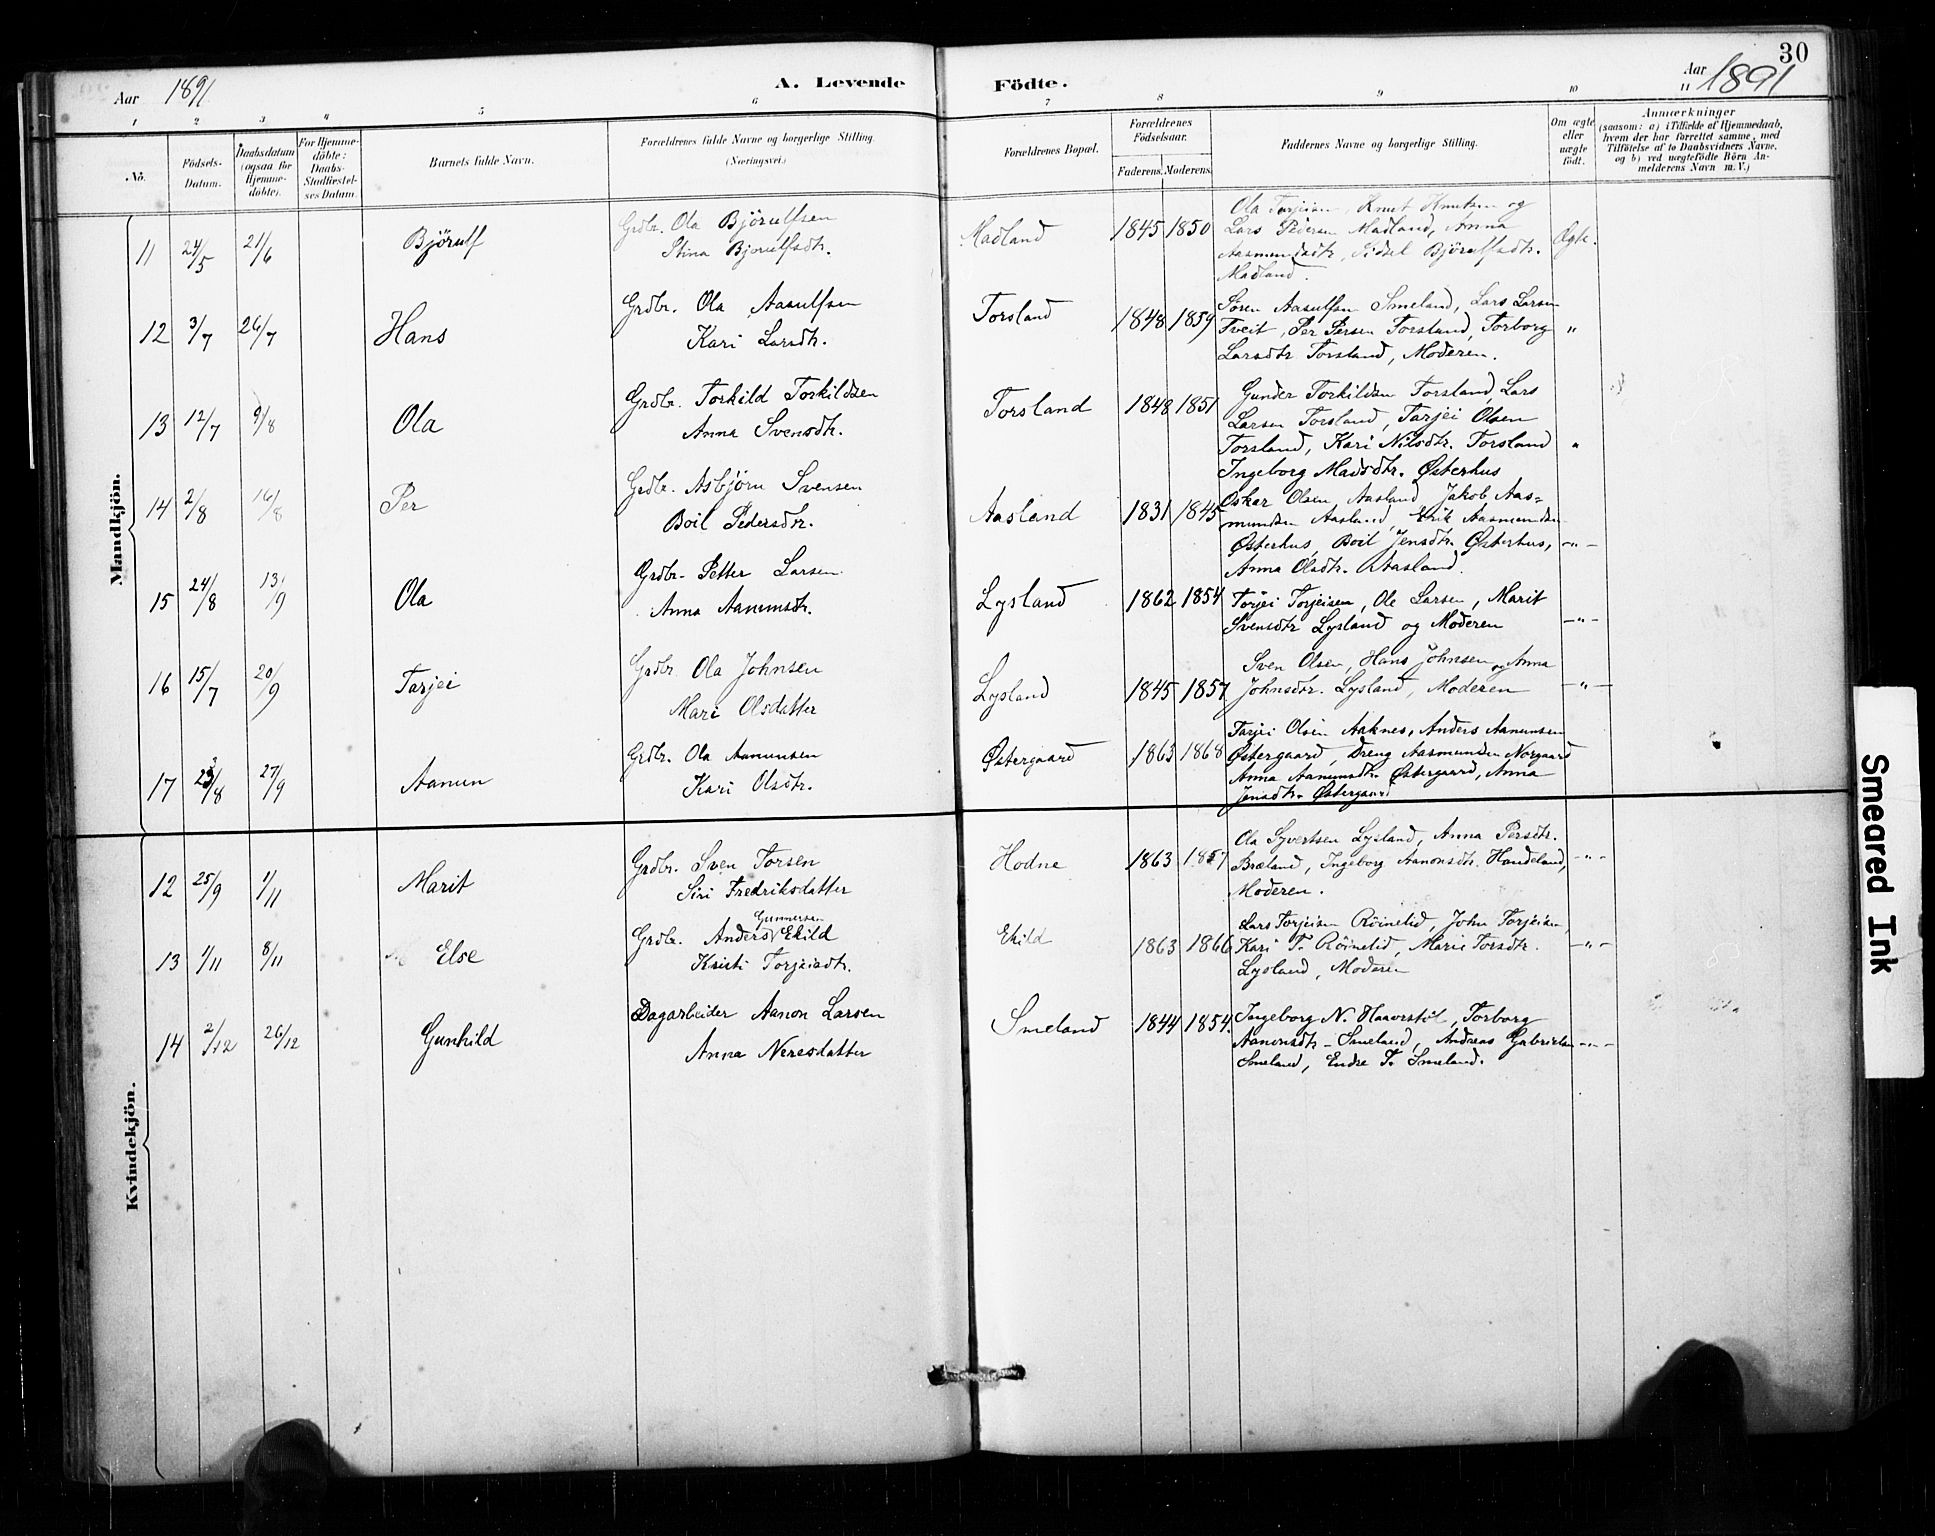 30
Aar 1891
A. Levende Födte.
Aar 1891
1 2 3 4 5 6 7 8 9 10 11
No.
Födsels-Datum.
Daabsdatum (ogsaa for Hjemmedöbte).
For Hjemmedöbte: Daabs-Stadfæstelses Datum.
Barnets fulde Navn.
Forældrenes fulde Navne og borgerlige Stilling.
(Næringsvei.)
Forældrenes Bopæl.
Forældrenes Födselsaar.
Faderens. Moderens.
Faddernes Navne og borgerlige Stilling.
Om ægte eller uægte födt.
Anmærkninger
(saasom: a) i Tilfælde af Hjemmedaab,
hvem der har forrettet samme, med
Tilföielse af to Daabsvidners Navne,
og b) ved uægtefödte Börn An-
melderens Navn m. V.)
Mandkjön.
11 24/5 21/6 Björulf Grdbr. Ola Björulfsen Madland 1845 1850 Ola Tarjeisen, Knut Knutsen og
Stina Bjorulfsdtr. Lars Pedersen Madland, Anna Ægte.
Aasmundsdtr, Sidsel Björulfsdtr.
Madland.
12 3/7 26/7 Hans Grdbr. Ola Aasulfsen Torsland 1848 1859 Sören Aasulfsen Smeland, Lars Larsen
Kari Larsdtr. Tveit, Per Persen Torsland, Torborg "
Larsdtr Torsland, Moderen.
13 12/7 9/8 Ola Grdbr. Torkild Torkildsen Torsland 1848 1851 Gunder Torkildsen Torsland, Lars
Anna Svensdtr. Larsen Torsland, Tarjei Olsen
Torsland, Kari Nilsdtr. Torsland "
Ingeborg Madsdtr. Østerhus
14 2/8 16/8 Per Grdbr. Asbjörn Svensen Aasland 1831 1845 Oskar Olsen, Aasland, Jakob Aas-
Boil Pedersdtr. mundsen Aasland, Erik Aasmundsen
Østerhus, Boil Jensdtr. Østerhus, -"-
Anna Olsdtr. Aasland.
15 24/8 13/9 Ola Grdbr. Petter Larsen Lysland 1862 1854 Torjei Torjeisen, Ole Larsen, Marit
Anna Aanunsdtr. Svensdtr Lysland og Moderen -"-
16 15/7 20/9 Tarjei Grdbr Ola Johnsen Lysland 1845 1857 Sven Olsen, Hans Johnsen og Anna
Mari Olsdatter Johnsdtr. Lysland, Moderen -"-
17 23/8 27/9 Aanun Grdbr. Ola Aanunsen Østergaard 1863 1868 Tarjei Olsen Aaknes, Anders Aanunsen
Kari Olsdtr. Østergaard, Dreng Aasmundsen Norgaard
Anna Aanunsdtr. Østergaard, Anna
Jensdtr. Østergaard
Kvindekjön.
12 25/9 1/11 Marit Grdbr. Sven Torsen Hodne 1863 1857 Ola Syvertsen Lysland, Anna Persdtr.
Siri Fredriksdatter Bræland, Ingeborg Aanonsdtr. Handeland, -"-
Moderen.
13 1/11 8/11 Else Grdbr. Anders Gunnersen Ekild Ekild 1863 1866 Lars Torjeisen Röinelid, John Torjeisen,
Kristi Torjeisdtr. Kari T. Röinelid, Marie Torsdtr. -"-
Lysland, Moderen
14 2/12 26/12 Gunhild Dagarbeider Aanon Larsen Smeland 1844 1854. Ingeborg N. Haaverstöl, Torborg
Anna Neresdatter Aanonsdtr Smeland, Andreas Gabrielsen -"-
Smeland, Endre T. Smeland.
Smeared Ink